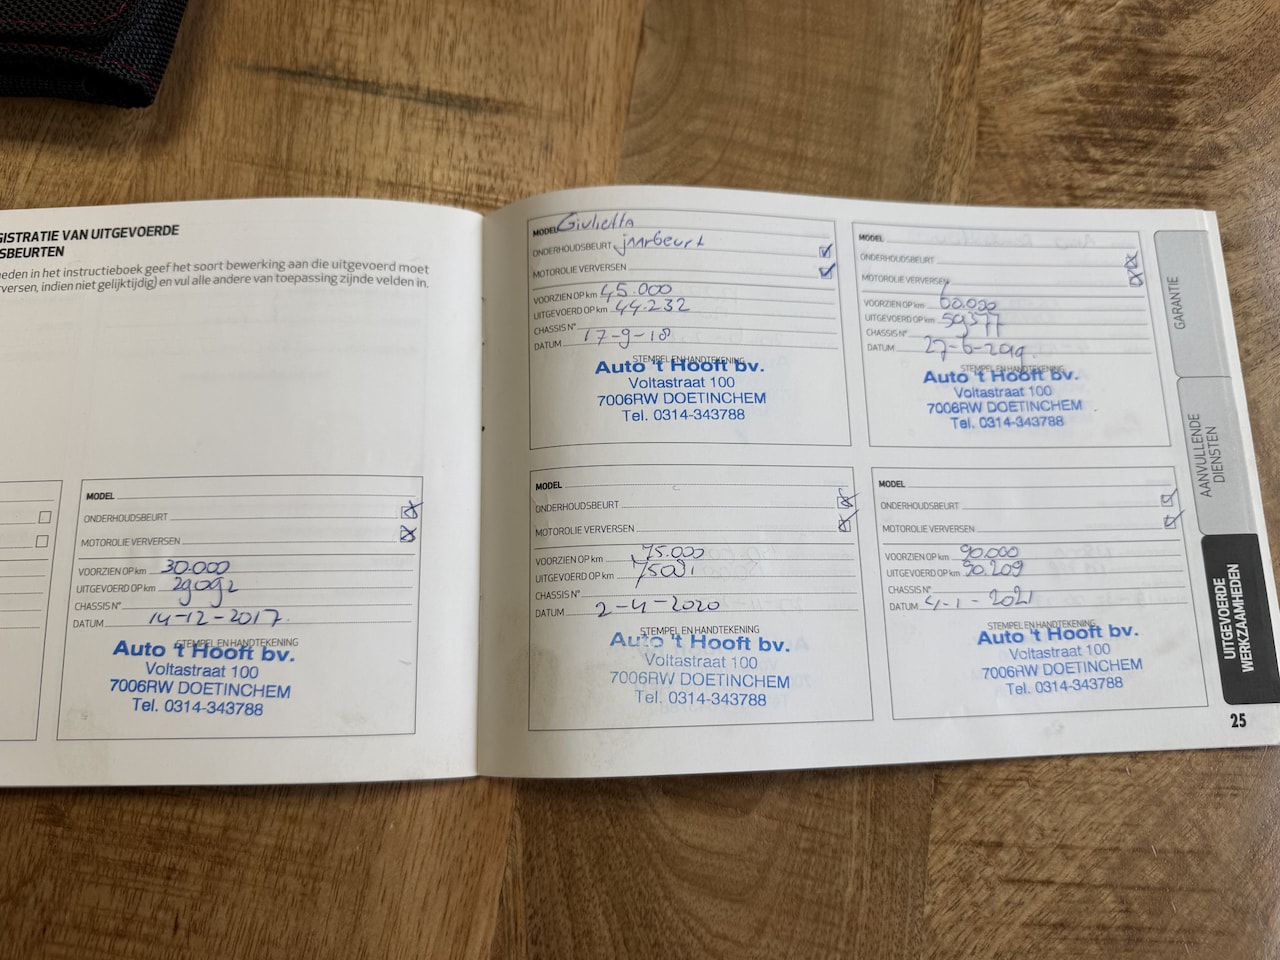 GISTRATIE VAN UITGEVOERDE
SBEURTEN
heden in het instructieboek geef het soort bewerking aan die uitgevoerd moet
rversen, indien niet gelijktijdig) en vul alle andere van toepassing zijnde velden in.
MODEL
ONDERHOUDSBEURT
MOTOROLIE VERVERSEN
VOORZIEN OP km 30.000
UITGEVOERD OP km 29092
CHASSIS N°
DATUM 14-12-2017.
STEMPEL EN HANDTEKENING
Auto 't Hooft bv.
Voltastraat 100
7006RW DOETINCHEM
Tel. 0314-343788
MODEL Giulietta
ONDERHOUDSBEURT jaarbeurt
MOTOROLIE VERVERSEN
VOORZIEN OP km 45.000
UITGEVOERD OP km 44.232
CHASSIS N°
DATUM 17-9-18
STEMPEL EN HANDTEKENING
Auto 't Hooft bv.
Voltastraat 100
7006RW DOETINCHEM
Tel. 0314-343788
MODEL
ONDERHOUDSBEURT
MOTOROLIE VERVERSEN
VOORZIEN OP km 60.000
UITGEVOERD OP km 59377
CHASSIS N°
DATUM 27-6-2019.
STEMPEL EN HANDTEKENING
Auto 't Hooft bv.
Voltastraat 100
7006RW DOETINCHEM
Tel. 0314-343788
MODEL
ONDERHOUDSBEURT
MOTOROLIE VERVERSEN
VOORZIEN OP km 75.000
UITGEVOERD OP km
CHASSIS N°
DATUM 2-4-2020
STEMPEL EN HANDTEKENING
Auto 't Hooft bv.
Voltastraat 100
7006RW DOETINCHEM
Tel. 0314-343788
MODEL
ONDERHOUDSBEURT
MOTOROLIE VERVERSEN
VOORZIEN OP km 90.000
UITGEVOERD OP km 90.209
CHASSIS N°
DATUM 4-1-2021
STEMPEL EN HANDTEKENING
Auto 't Hooft bv.
Voltastraat 100
7006RW DOETINCHEM
Tel. 0314-343788
GARANTIE
AANVULLENDE
DIENSTEN
UITGEVOERDE
WERKZAAMHEDEN
25